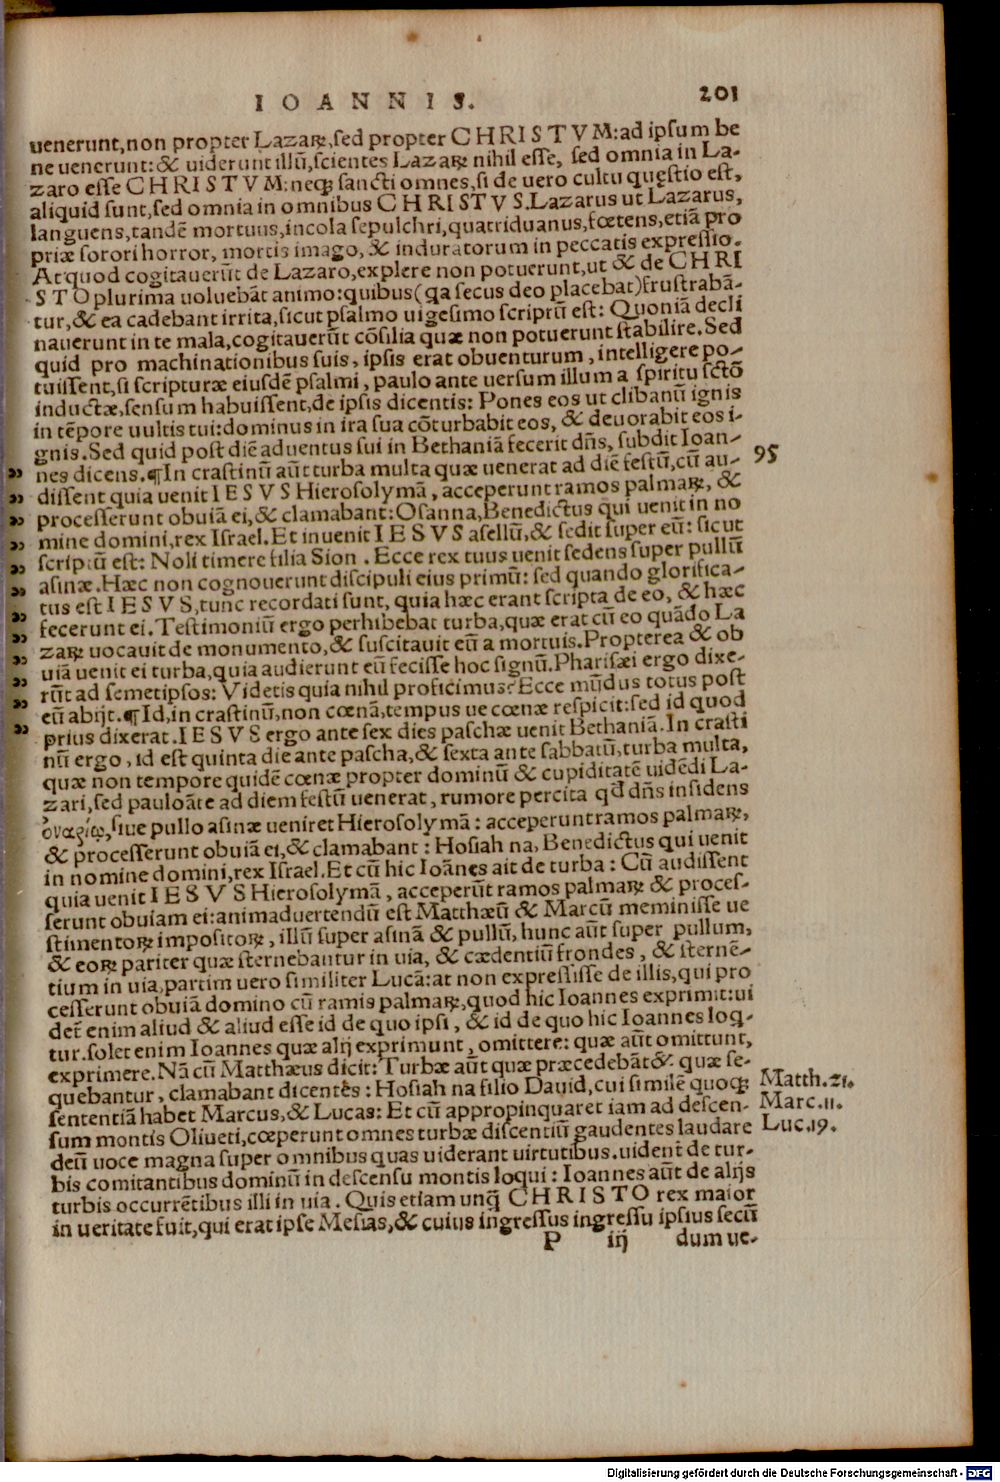 IOANNIS. 201
uenerunt,non propter Lazaꝝ,sed propter CHRISTVM:ad ipsum be
ne uenerunt:& uiderunt illũ,scientes Lazaꝝ nihil esse, sed omnia in La-
zaro esse CHRISTVM:neqꝫ sancti omnes,si de uero cultu quęstio est,
aliquid sunt,sed omnia in omnibus CHRISTVS.Lazarus ut Lazarus,
languens,tandẽ mortuus,incola sepulchri,quatriduanus,fœtens,etiã pro
priæ sorori horror, mortis imago, & induratorum in peccatis expressio.
At quod cogitauerũt de Lazaro,explere non potuerunt,ut & de CHRI
STO plurima uoluebãt animo:quibus(qa secus deo placebat)frustrabã-
tur,& ea cadebant irrita,sicut psalmo uigesimo scriptũ est: Quoniã decli
nauerunt in te mala,cogitauerũt cõsilia quæ non potuerunt stabilire.Sed
quid pro machinationibus suis, ipsis erat obuenturum, intelligere po-
tuissent,si scripturæ eiusdẽ psalmi, paulo ante uersum illum a spiritu sctõ
inductæ,sensum habuissent,de ipsis dicentis: Pones eos ut clibanũ ignis
in tẽpore uultis tui:dominus in ira sua cõturbabit eos, & deuorabit eos i-
gnis.Sed quid post diẽ aduentus sui in Bethaniã fecerit dñs, subdit Ioan-
nes dicens.¶In crastinũ aũt turba multa quæ uenerat ad diẽ festũ,cũ au- 95
dissent quia uenit IESVS Hierosolymã, acceperunt ramos palmaꝝ, &
processerunt obuiã ei,& clamabant:Osanna,Benedictus qui uenit in no
mine domini,rex Israel.Et inuenit IESVS asellũ,& sedit super eũ: sicut
scriptũ est: Noli timere filia Sion. Ecce rex tuus uenit sedens super pullũ
asinæ.Hæc non cognouerunt discipuli eius primũ: sed quando glorifica-
tus est IESVS,tunc recordati sunt, quia hæc erant scripta de eo, & hæc
fecerunt ei.Testimoniũ ergo perhibebat turba,quæ erat cũ eo quãdo La
zaꝝ uocauit de monumento,& suscitauit eũ a mortuis.Propterea & ob
uiã uenit ei turba,quia audierunt eũ fecisse hoc signũ.Pharisæi ergo dixe-
rũt ad semetipsos: Videtis quia nihil proficimus? Ecce mũdus totus post
eũ abijt.¶Id,in crastinũ,non cœnã,tempus ue cœnæ respicit:sed id quod
prius dixerat.IESVS ergo ante sex dies paschæ uenit Bethaniã.In crasti
nũ ergo, id est quinta die ante pascha,& sexta ante sabbatũ,turba multa,
quæ non tempore quidẽ cœnæ propter dominũ & cupiditatẽ uidẽdi La-
zari,sed pauloãte ad diem festũ uenerat, rumore percita qđ dñs insidens
ὀναρίῳ,siue pullo asinæ ueniret Hierosolymã: acceperunt ramos palmaꝝ,
& processerunt obuiã ei,& clamabant: Hosiah na, Benedictus qui uenit
in nomine domini,rex Israel.Et cũ hic Ioãnes ait de turba: Cũ audissent
quia uenit IESVS Hierosolymã, acceperũt ramos palmaꝝ & proces-
serunt obuiam ei:animaduertendũ est Matthæũ & Marcũ meminisse ue
stimentoꝝ impositoꝝ, illũ super asinã & pullũ, hunc aũt super pullum,
& eoꝝ pariter quæ sternebantur in uia, & cædentiũ frondes, & sternẽ-
tium in uia,partim uero similiter Lucã:at non expressisse de illis,qui pro
cesserunt obuiã domino cũ ramis palmaꝝ,quod hic Ioannes exprimit:ui
det̃ enim aliud & aliud esse id de quo ipsi, & id de quo hic Ioannes loq-
tur.solet enim Ioannes quæ alij exprimunt, omittere: quæ aũt omittunt,
exprimere.Nã cũ Matthæus dicit: Turbæ aũt quæ præcedebãt & quæ se-
quebantur, clamabant dicentes: Hosiah na filio Dauid,cui similẽ quoqꝫ Matth.21.
sententiã habet Marcus,& Lucas: Et cũ appropinquaret iam ad descen- Marc.11.
sum montis Oliueti,cœperunt omnes turbæ discentiũ gaudentes laudare Luc.19.
deũ uoce magna super omnibus quas uiderant uirtutibus.uident̃ de tur-
bis comitantibus dominũ in descensu montis loqui: Ioannes aũt de alijs
turbis occurrẽtibus illi in uia. Quis etiam unq̃ CHRISTO rex maior
in ueritate fuit,qui erat ipse Mesias,& cuius ingressus ingressu ipsius secũ
P iij dum ue-
Digitalisierung gefördert durch die Deutsche Forschungsgemeinschaft - DFG